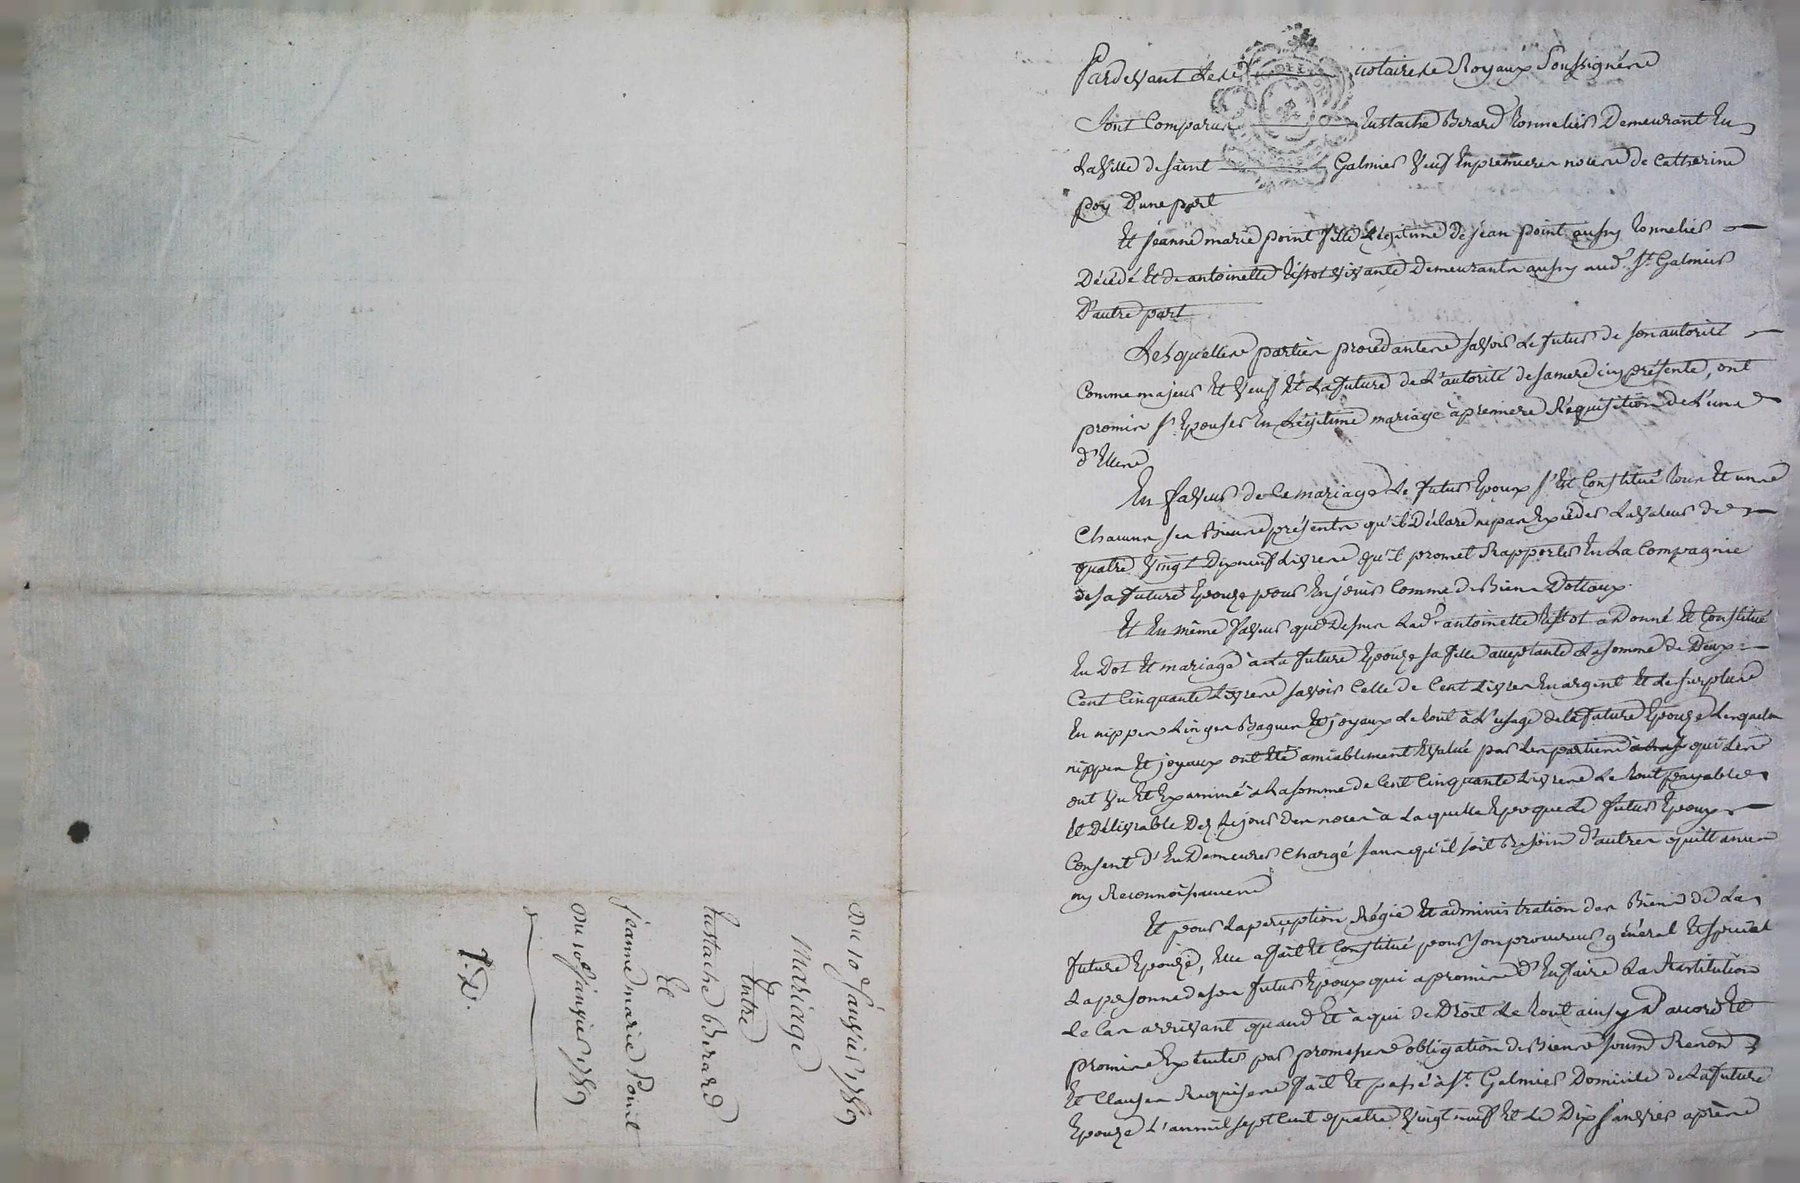 Pardevant les notaires Royaux Soussignés
Sont Comparus Eustache Berard Tonnelier Demeurant En
La Ville de Saint Galmier Veuf En premieres noces de Catherine
poy D'une part
Et jeanne marie point fille Légitime de jean point aussy Tonnelier
Décédé Et de antoinette vivante Demeurants aussy aud. St. Galmier
D'autre part
Lesquelles parties procédantes savoir Le futur de son autorité
Comme majeur Et Veuf Et La future de L'autorité de sa mere icy présente, ont
promis s'Epouser En Légitime mariage à premiere Réquisition de L'une
d'Elles
En faveur de Ce mariage Le futur Epoux s'Est Constitué Tous Et un
Chacuns ses Biens présents qu'il Déclare ne pas Excéder La Valeur de
quatre Vingt Dix neuf Livres qu'il promet Rapporter En La Compagnie
de sa future Epouze pour En jouir Comme de Biens Dottaux
Et En même faveur que Dessus Lad. antoinette a Donné Et Constitué
En Dot Et mariage à La future Epouze sa fille acceptante La somme de Deux
Cent Cinquante Livres savoir Celle de Cent Livres En argent Et Le surplus
En nippes Linges Bagues Et joyaux Le Tout à L'usage de la future Epouze Lesquels
nippes Et joyaux ont Eté amiablement Evalué par Les parties qui Les
ont Vu Et Examiné à La somme de Cent Cinquante Livres Le Tout payable
Et Délivrable Dez Le jour des noces à Laquelle Epoque Le futur Epoux
Consent d'En Demeurer Chargé sans qu'il soit Besoin d'autres quittances
ny Reconnoissances
Et pour La perception Régie Et administration des Biens de La
future Epouze, Elle a fait Et Constitué pour son procureur général Et spécial
La personne de son futur Epoux qui a promis d'En faire La Restitution
Le Cas arrivant quand Et à qui de Droit Le Tout ainsy D'accord Et
promis Exécuter par promesses obligation de Biens soum Renon
Et Clauses Requises fait Et passé à St. Galmier Domicile de La future
Epouze L'an mil sept Cent quatre Vingt neuf Et Le Dix janvier après
Du 10 janvier 1789
Mariage
Entre
Eustache Berard
Et
jeanne marie Point
Du 10 janvier 1789